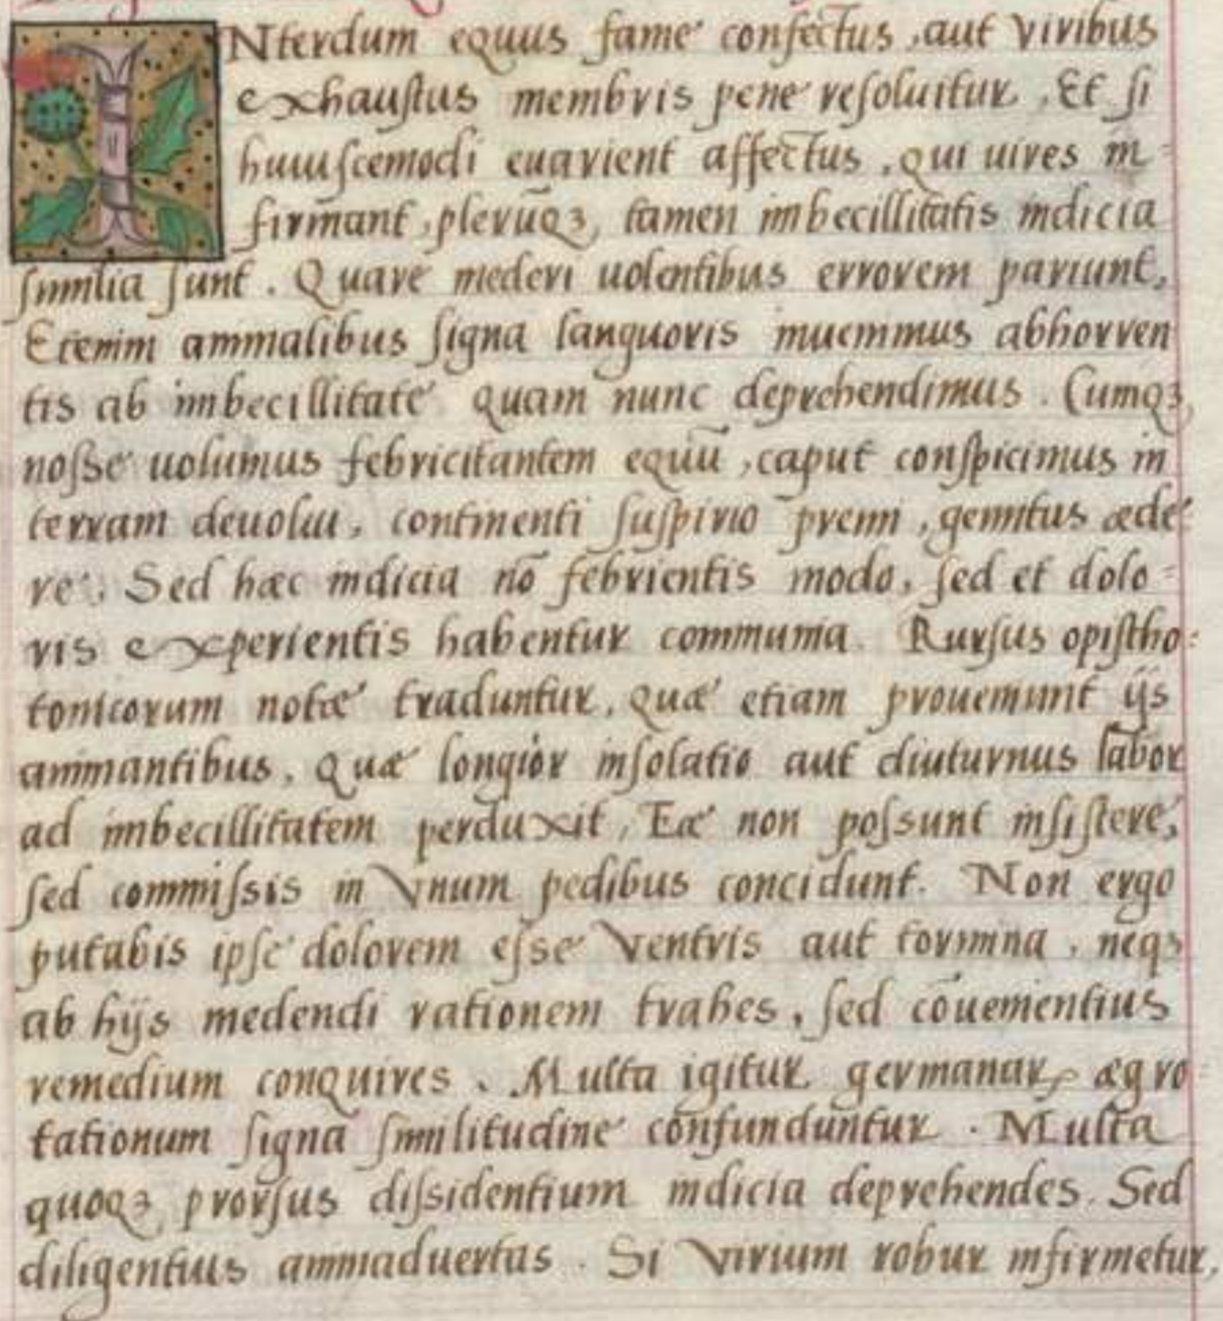 INterdum equus fame confectus, aut viribus
exhaustus membris pene resoluitur. Et si
huiuscemodi euarient affectus, qui uires in=
firmant, plerūq3, tamen imbecillitatis indicia
similia sunt. Quare mederi uolentibus errorem pariunt,
Etenim animalibus signa languoris inuenimus abhorren
tis ab imbecillitate quam nunc deprehendimus. Cumq3
nosse uolumus febricitantem equū, caput conspicimus in
terram deuolui, continenti suspirio premi, gemitus æde=
re. Sed hæc indicia nō febrientis modo, sed et dolo=
ris experientis habentur communia. Rursus opistho=
tonicorum notæ traduntur, quæ etiam proueniunt ijs
animantibus, quæ longior insolatio aut diuturnus labor
ad imbecillitatem perduxit, Eæ non possunt insistere,
sed commissis in vnum pedibus concidunt. Non ergo
putabis ipse dolorem esse ventris aut tormina, neq3
ab hijs medendi rationem trahes, sed cōuenientius
remedium conquires. Multa igitur germanaꝝ ægro=
tationum signa similitudine confunduntur. Multa
quoq3 prorsus dissidentium indicia deprehendes. Sed
diligentius animaduertas. Si virium robur infirmetur,